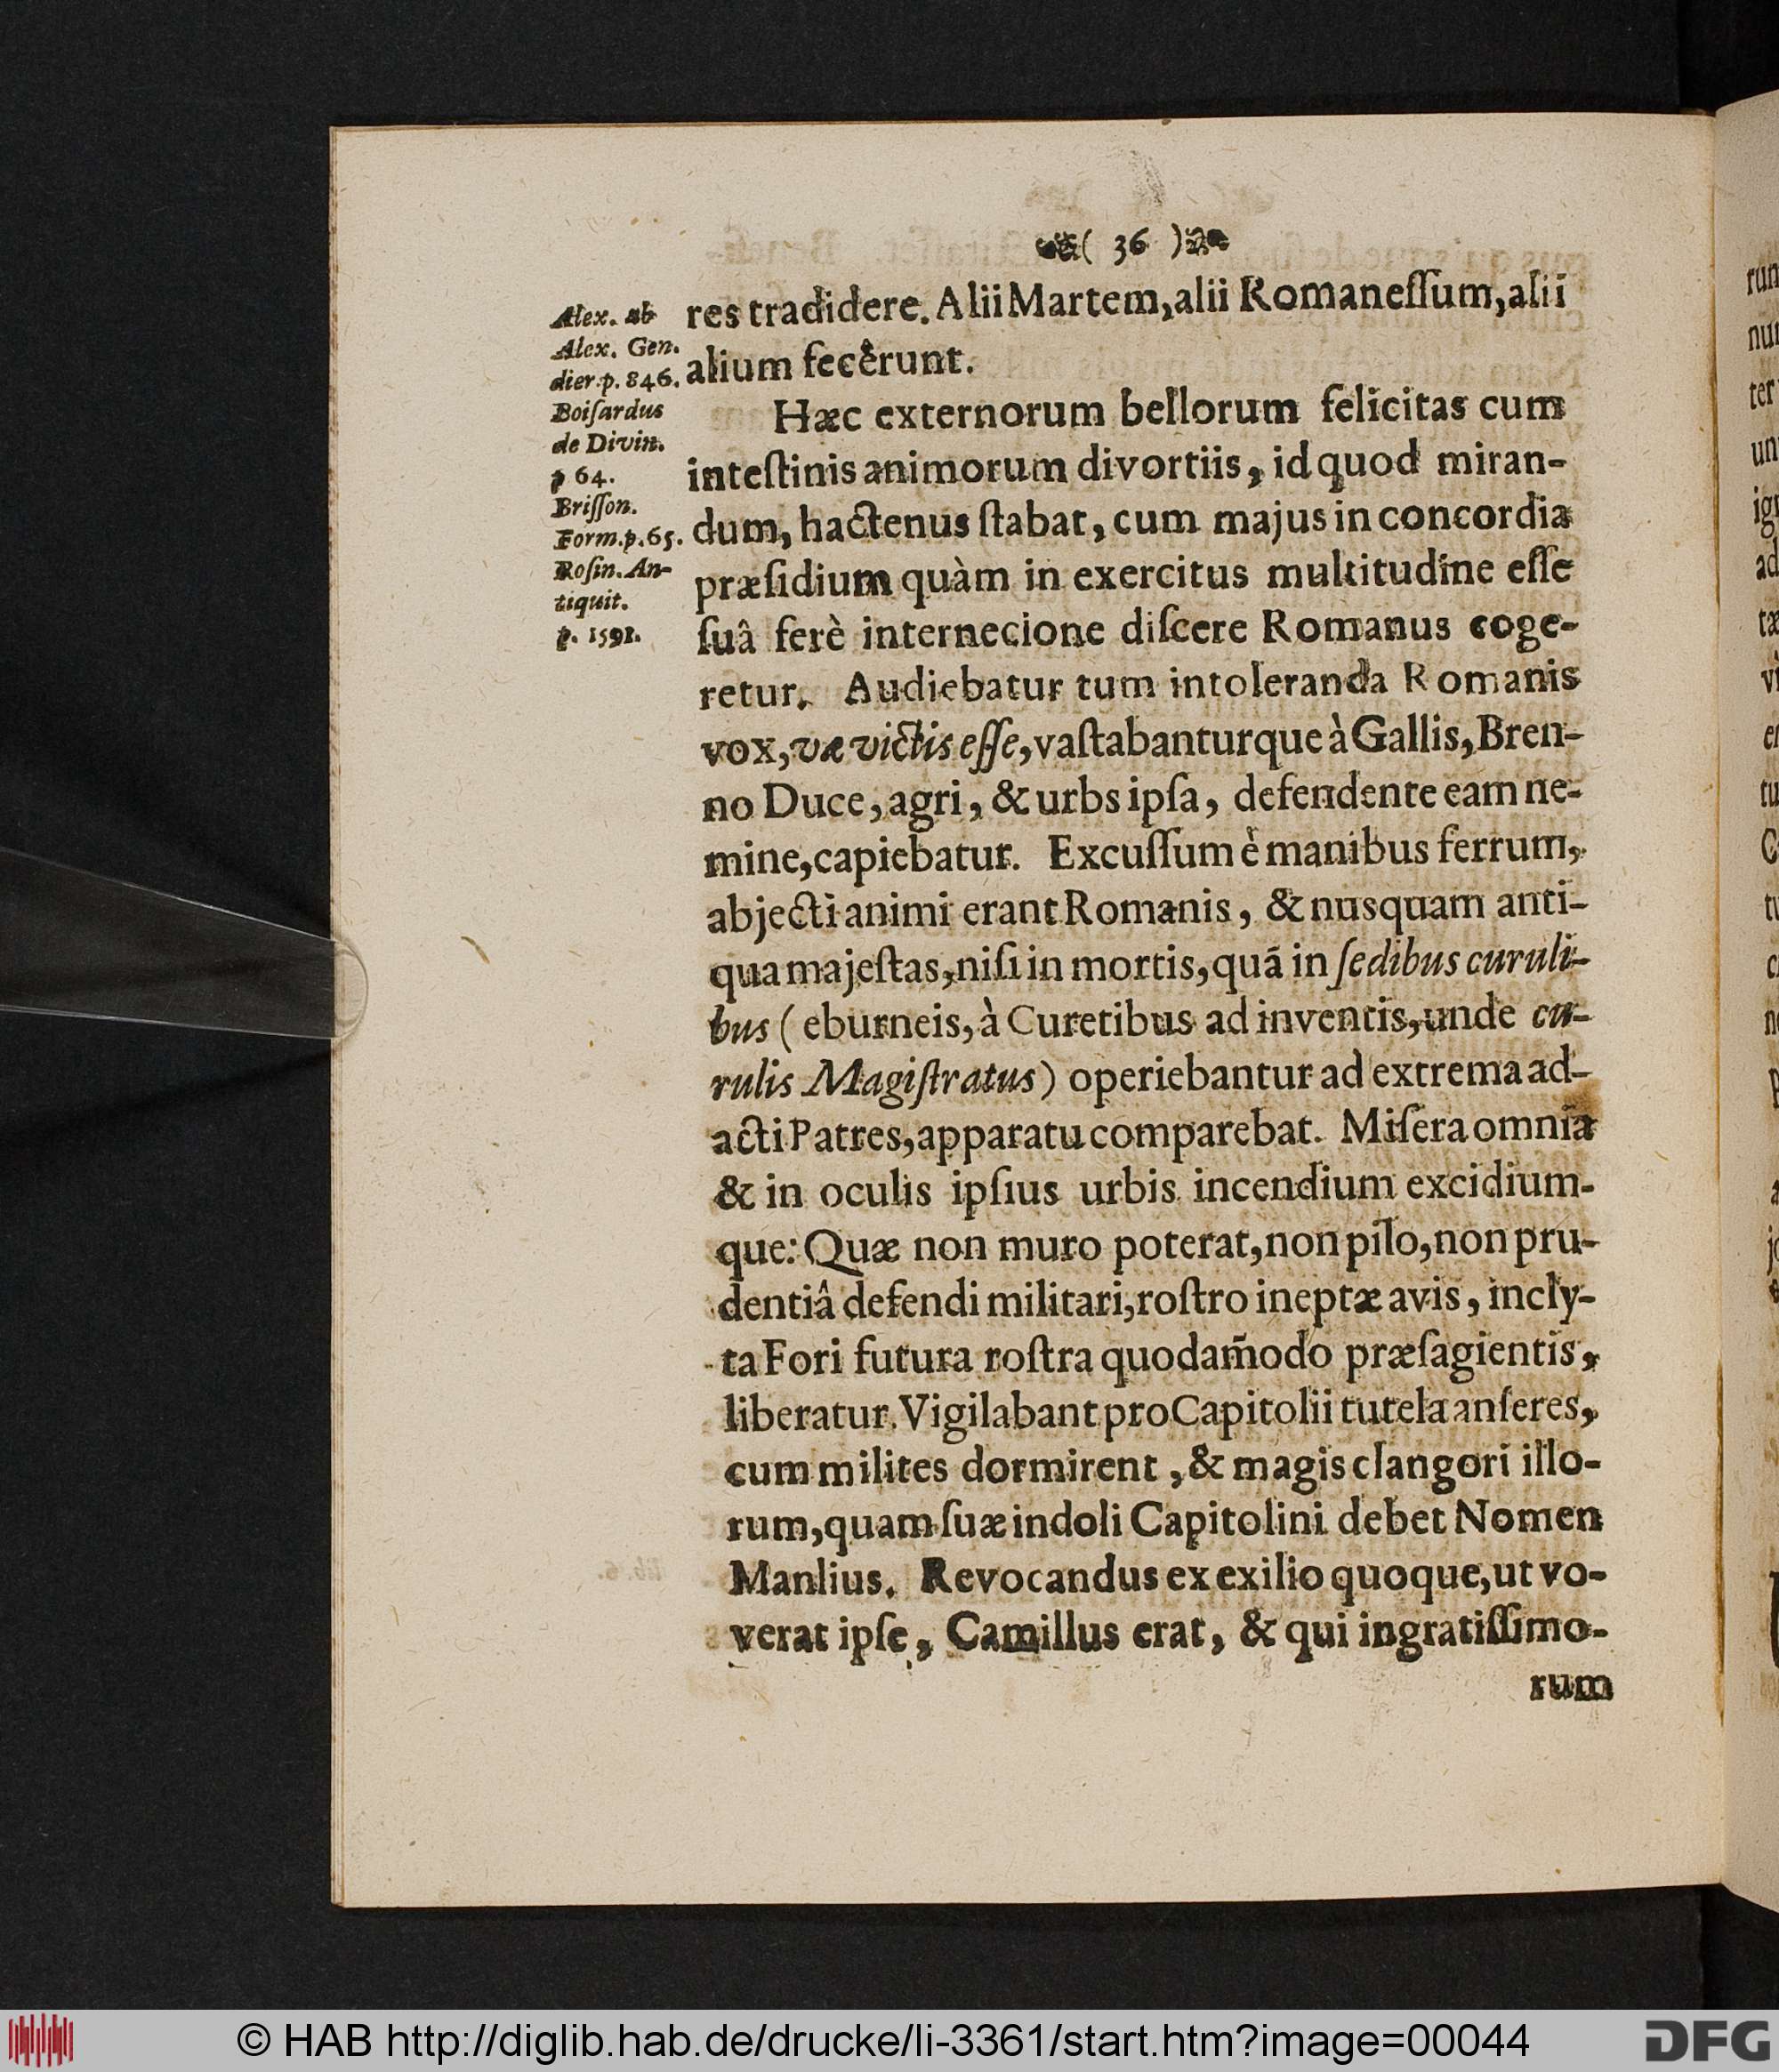 ( 36 )
Alex. ab
Alex. Gen.
dier. p. 846.
Boiſardus
de Divin.
p 64.
Briſſon.
Form. p. 65.
Roſin. An-
tiquit.
p. 1591.
res tradidere. Alii Martem, alii Romaneſſum, alii
alium fecêrunt.
Hæc externorum bellorum felicitas cum
inteſtinis animorum divortiis, id quod miran-
dum, hactenus ſtabat, cum majus in concordia
præſidium quàm in exercitus multitudine eſſe
ſuâ ferè internecione diſcere Romanus coge-
retur. Audiebatur tum intoleranda Romanis
vox, væ victis eſſe, vaſtabanturque à Gallis, Bren-
no Duce, agri, & urbs ipſa, defendente eam ne-
mine, capiebatur. Excuſſum è manibus ferrum,
abjecti animi erant Romanis, & nusquam anti-
qua majeſtas, niſi in mortis, quã in ſedibus curuli-
bus ( eburneis, à Curetibus ad inventis, unde cu-
rulis Magiſtratus) operiebantur ad extrema ad-
acti Patres, apparatu comparebat. Miſera omnia
& in oculis ipſius urbis incendium excidium-
que: Quæ non muro poterat, non pilo, non pru-
dentiâ defendi militari, roſtro ineptæ avis, incly-
ta Fori futura roſtra quodam̃odo præſagientis,
liberatur. Vigilabant pro Capitolii tutela anſeres,
cum milites dormirent, & magis clangori illo-
rum, quam ſuæ indoli Capitolini debet Nomen
Manlius. Revocandus ex exilio quoque, ut vo-
verat ipſe, Camillus erat, & qui ingratiſſimo-
rum
run
nu
ter
un
ad
© HAB http://diglib.hab.de/drucke/li-3361/start.htm?image=00044
DFG